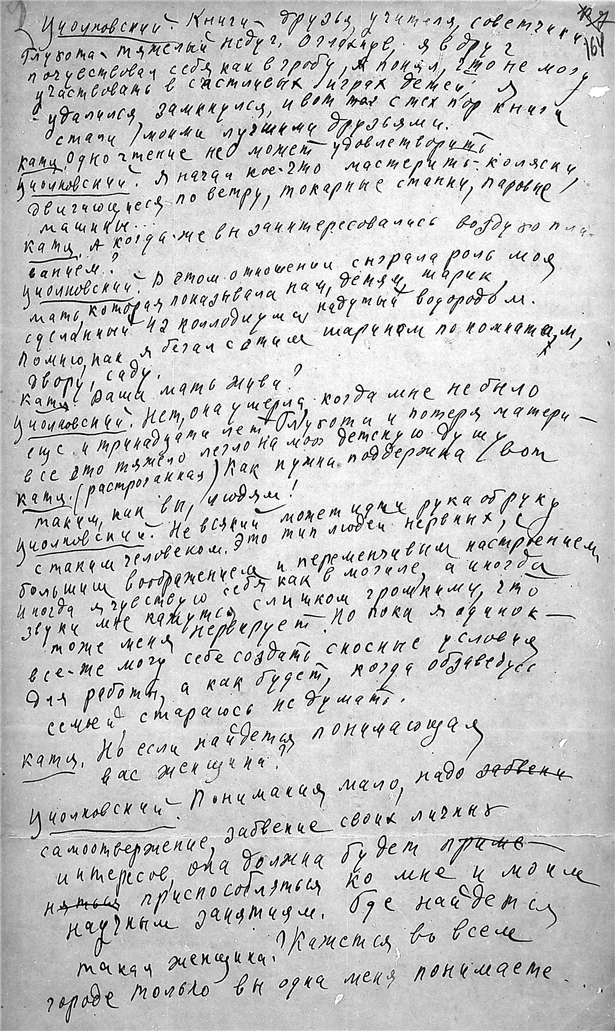 137
164
Циолковский. Книги – друзья, учителя, советчики.
Глухота – тяжелый недуг. Оглохнув, я вдруг
почувствовал себя как в гробу, я понял, что не могу
участвовать в счастливых играх детей. Я
удалился, замкнулся, и вот с тех пор книги
стали моими лучшими друзьями.
Катя. Одно чтение не может удовлетворить
Циолковский. Я начал кое-что мастерить – коляски,
двигающиеся по ветру, токарные станки, паровые
машины...
Катя. А когда же вы заинтересовались воздухопла-
ванием?
Циолковский. В этом отношении сыграла роль моя
мать, которая показывала нам, детям, шарик,
сделанный из коллодиума, надутый водородом.
Помню, как я бегал с этим шариком по комнатам,
двору, саду.
Катя. Ваша мать жива?
Циолковский. Нет, она умерла, когда мне не было
еще и тринадцати лет. Глухота и потеря матери –
все это тяжело легло на мою детскую душу
Катя. (растроганная) Как нужна поддержка (вот
таким, как вы, людям!
Циолковский. Не всякий может идти рука об руку
с таким человеком. Это тип людей нервных, с
большим воображением и переменчивым настроением
Иногда я чувствую себя как в могиле, а иногда
звуки мне кажутся слишком громкими, что
тоже меня нервирует. Но пока я одинок –
все-же могу себе создать сносные условия
для работы, а как будет, когда обзаведусь
семьей, стараюсь не думать.
Катя. Но если найдется понимающая
вас женщина?
Циолковский. Понимания мало, надо забвени
самоотвержение, забвение своих личных
интересов, она должна будет приме-
няться приспособляться ко мне и моим
научным занятиям. Где найдется
такая женщина? Кажется во всем
городе только вы одна меня понимаете...